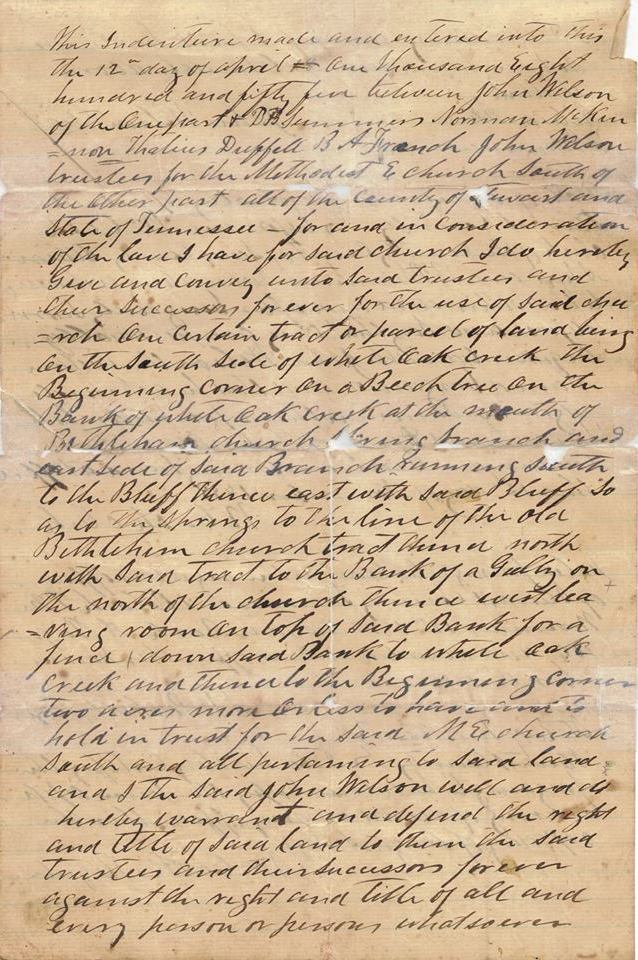 This Indenture made and entered into this
the 12th day of april One thousand Eight
hundred and fifty five between John Wilson
of the One part & D B Summers Norman McKin
=non Duffell B A French John Wilson
trustees for the Methodist E church South of
the other part all of the County of Stewart and
State of Tennessee – for and in Consideration
of the love I have for said church I do hereby
Give and Convey unto said trustees and
their Successors for ever for the use of said chu
=rch One Certain tract or parcel of land being
on the South Side of white Oak creek the
Beginning corner on a Beech tree on the
Bank of white Oak Creek at the mouth of
Bethleham church Spring branch and
east side of said Branch running south
to the Bluff thence east with said Bluff So
as to the Springs to the line of the old
Bethlehem church tract thence north
with said tract to the Bank of a Gully on
the north of the church thence west lea
=ving room on top of said Bank for a
fence down said Bank to white Oak
Creek and thence to the Beginning corner
two acres more or less to have and to
hold in trust for the said M E church
South and all pertaining to said land
and I the said John Wilson will and do
hereby warrant and defend the right
and title of said land to them the said
trustees and their successors forever
against the right and title of all and
every person or persons whatsoever